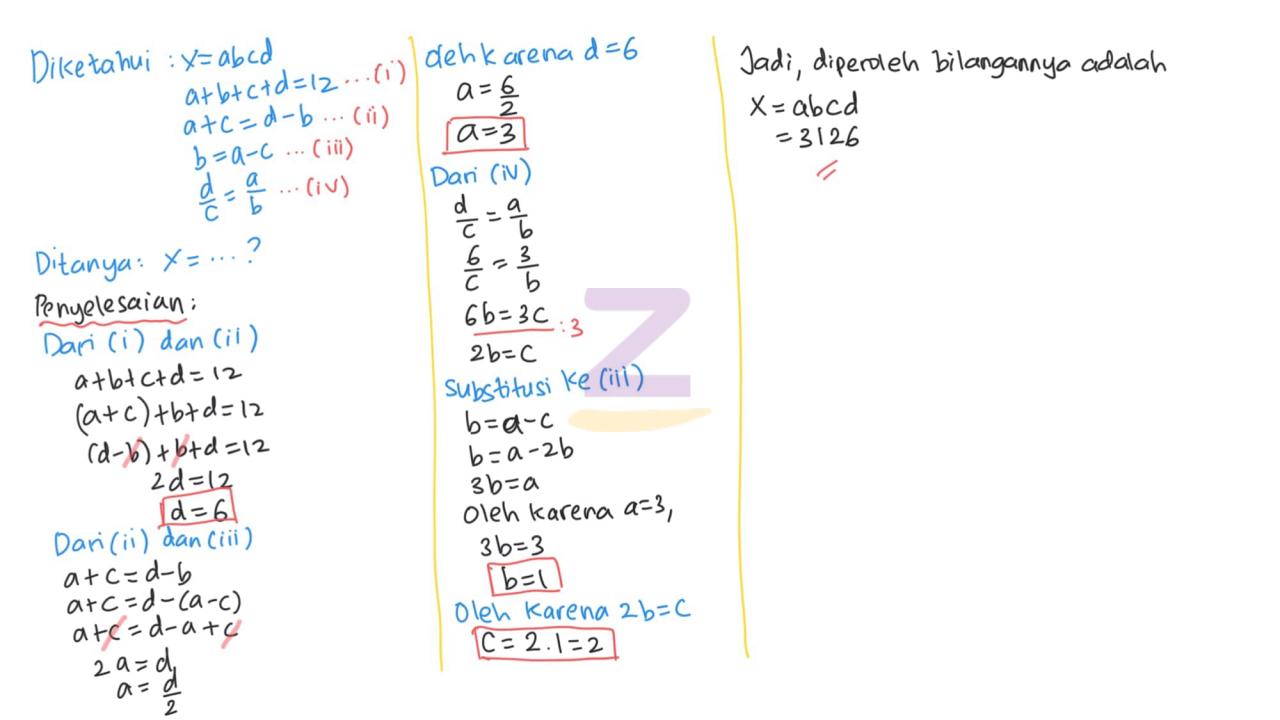 Diketahui : x=abcd
a+b+c+d=12 ...(i)
a+c=d-b ...(ii)
b=a-c ...(iii)
d/c = a/b ...(iv)
Ditanya: x= ...?
Penyelesaian:
Dari (i) dan (ii)
a+b+c+d=12
(a+c)+b+d=12
(d-b)+b+d=12
2d=12
d=6
Dari (ii) dan (iii)
a+c=d-b
a+c=d-(a-c)
a+c=d-a+c
2a=d
a=d/2
oleh karena d=6
a=6/2
a=3
Dari (iv)
d/c = a/b
6/c = 3/b
6b=3c :3
2b=c
Substitusi ke (iii)
b=a-c
b=a-2b
3b=a
Oleh karena a=3,
3b=3
b=1
Oleh karena 2b=c
c=2.1=2
Jadi, diperoleh bilangannya adalah
x=abcd
=3126
Z